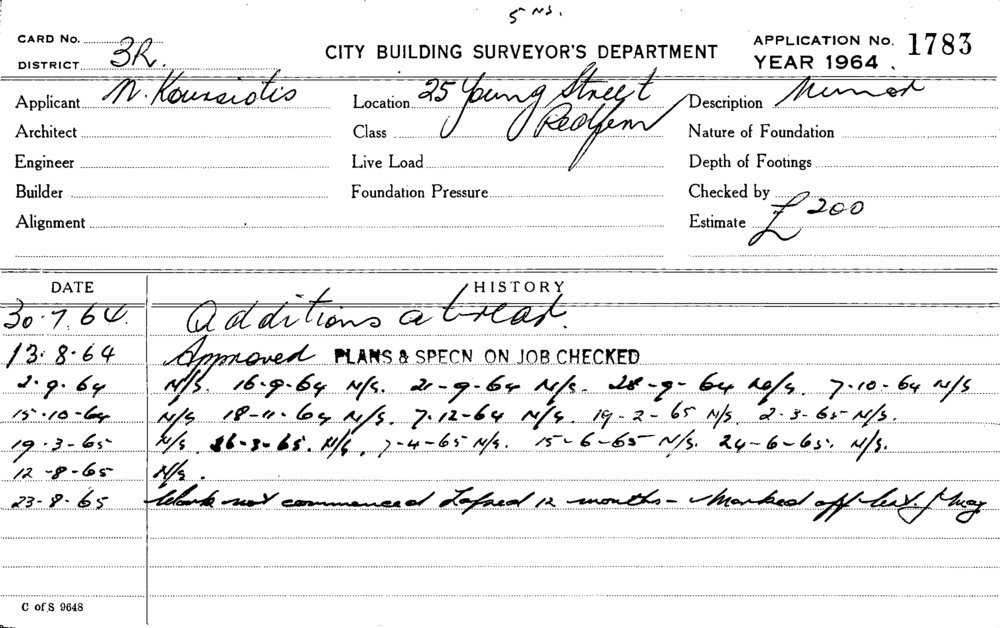 5 ns.
CARD No.
DISTRICT 3R.
CITY BUILDING SURVEYOR'S DEPARTMENT
APPLICATION No. 1783
YEAR 1964
Applicant N. Koussiotis
Location 25 Young Street Redfern
Description Minor
Architect
Class
Nature of Foundation
Engineer
Live Load
Depth of Footings
Builder
Foundation Pressure
Checked by
Alignment
Estimate £200
DATE HISTORY
30.7.64. Additions at rear.
13.8.64 Approved PLANS & SPECN ON JOB CHECKED
2-9-64 N/S. 16-9-64 N/S. 21-9-64 N/S. 28-9-64 N/S. 7-10-64 N/S
15-10-64 N/S 18-11-64 N/S. 7-12-64 N/S. 19-2-65 N/S. 2-3-65 N/S.
19-3-65 N/S 26-3-65. N/S. 7-4-65 N/S. 15-6-65 N/S. 24-6-65. N/S.
12-8-65 N/S.
23-8-65 Work not commenced Lapsed 12 months - Marked off
C of S 9648